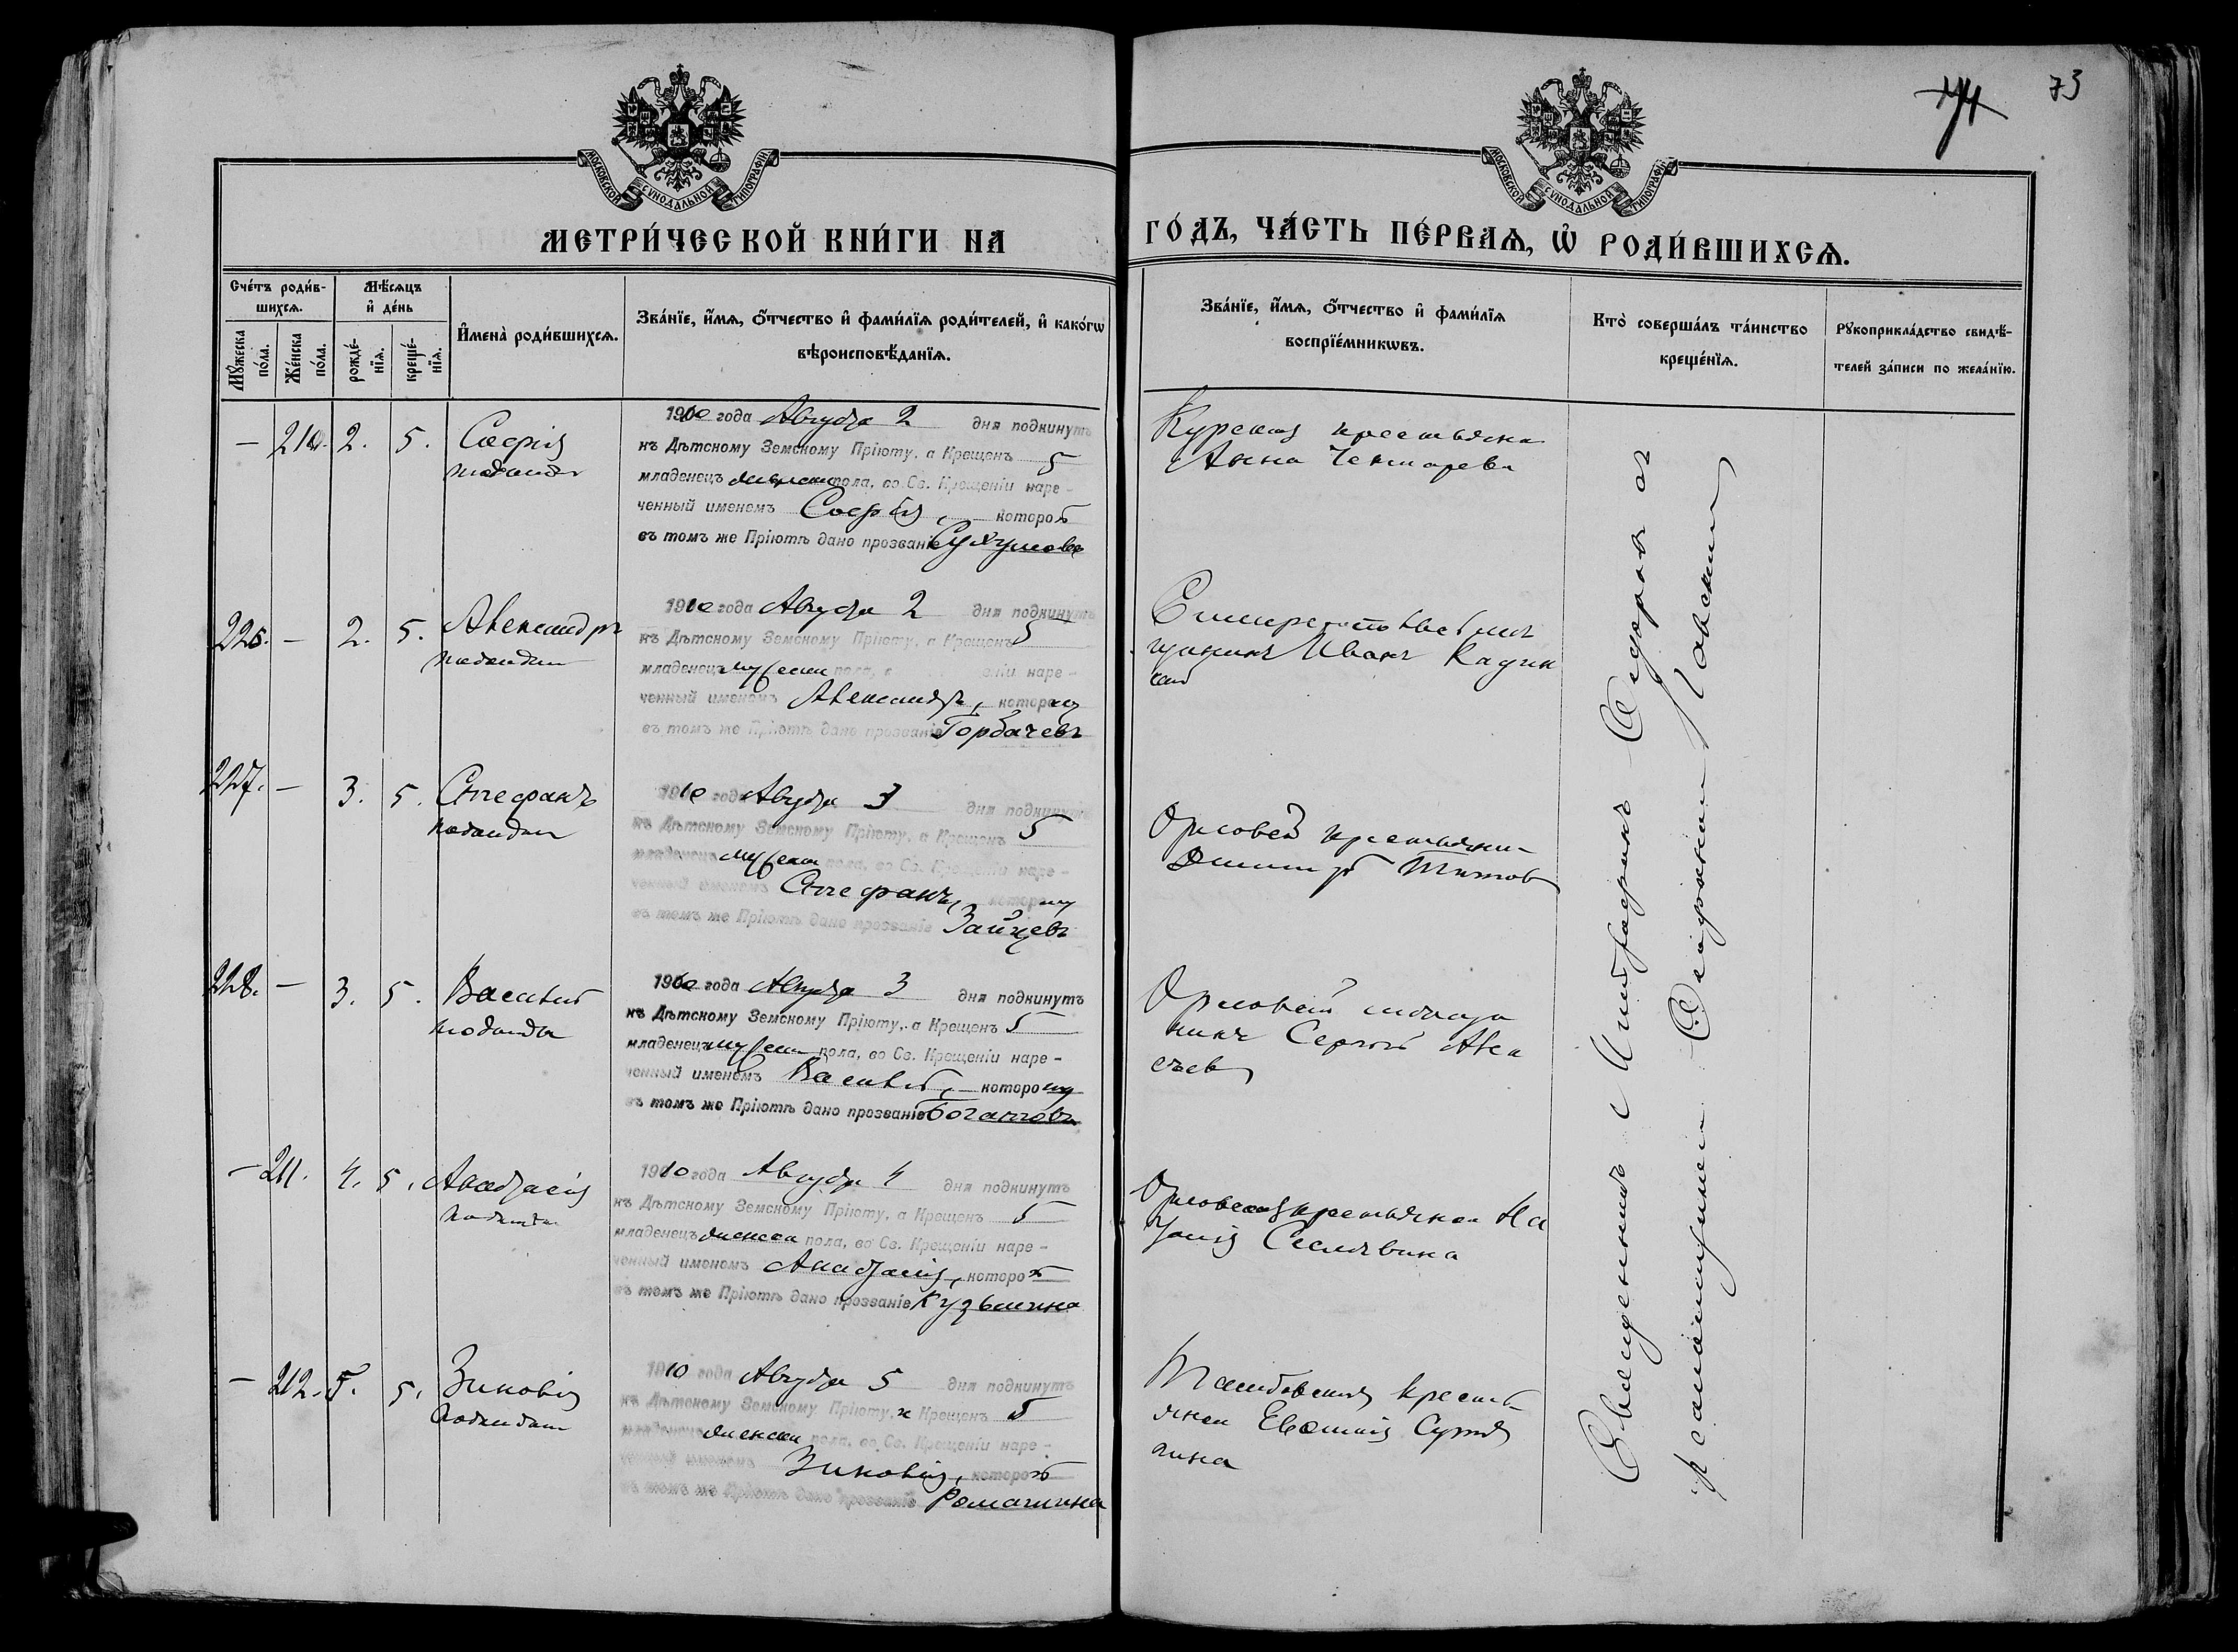 74
73
МОСКОВСКОЙ СѴНОДАЛЬНОЙ ТИПОГРАФІИ
МОСКОВСКОЙ СѴНОДАЛЬНОЙ ТИПОГРАФІИ
МЕТРИ́ЧЕСКОЙ КНИ́ГИ НА
ГО́ДЪ, ЧА́СТЬ ПЕ́РВАѦ, Ѽ РОДИ́ВШИХСѦ.
Сче́тъ роди́в-
шихсѧ.
Мѣ́сѧцъ
и҆ де́нь
Мꙋ́жеска
по́ла.
Же́нска
по́ла.
рожде́-
нїѧ.
креще́-
нїѧ.
И҆мена̀ роди́вшихсѧ.
Зва́нїе, и҆́мѧ, ѻ҆́тчество и҆ фами́лїѧ роди́телей, и҆ како́гѡ
вѣроисповѣ́данїѧ.
Зва́нїе, и҆́мѧ, ѻ҆́тчество и҆ фами́лїѧ
воспрїе́мникѡвъ.
Кто̀ соверша́лъ та́инство
креще́нїѧ.
Рꙋкоприкла́дство свидѣ́-
телей за́писи по жела́нїю.
— 210. 2. 5. Софія
подкидыш
1910 года Августа 2 дня подкинутъ
къ Дѣтскому Земскому Пріюту, а Крещенъ 5
младенецъ женскаго пола, во Св. Крещеніи наре-
ченный именемъ Софія, которой
въ томъ же Пріютѣ дано прозваніе Сухумова
Курская крестьянка
Анна
226. — 2. 5. Александръ
подкидыш
1910 года Августа 2 дня подкинутъ
къ Дѣтскому Земскому Пріюту, а Крещенъ 5
младенецъ мужеска пола, еніи наре-
ченный именемъ Александръ, которому
въ томъ же Пріютѣ дано прозваніе Горбачевъ
Иванъ
227. — 3. 5. Стефанъ
подкидыш
1910 года Августа 3 дня подкинутъ
къ Дѣтскому Земскому Пріюту, а Крещенъ 5
младенецъ мужеска пола, во Св. Крещеніи наре-
ченный именемъ Стефанъ, которому
въ томъ же Пріютѣ дано прозваніе Зайцевъ
Орловскій крестьянин
Дмитрій Титов
228. — 3. 5. Василій
подкидыш
1910 года Августа 3 дня подкинутъ
къ Дѣтскому Земскому Пріюту, а Крещенъ 5
младенецъ мужеска пола, во Св. Крещеніи наре-
ченный именемъ Василій, которому
въ томъ же Пріютѣ дано прозваніе Богатовъ
Орловскій мѣща
нинъ Сергѣй Але
ксѣев
— 211. 4. 5. Анастасія
подкидыш
1910 года Августа 4 дня подкинутъ
къ Дѣтскому Земскому Пріюту, а Крещенъ 5
младенецъ женска пола, во Св. Крещеніи наре-
ченный именемъ Анастасія, которой
въ томъ же Пріютѣ дано прозваніе Кузьмина
Орловская крестьянка На
талія Селиявина
— 212. 5. 5. Зиновія
подкидыш
1910 года Августа 5 дня подкинутъ
къ Дѣтскому Земскому Пріюту, и Крещенъ 5
младенецъ женска пола, во Св. Крещеніи наре-
ченный именемъ Зиновія, которой
въ томъ же Пріютѣ дано прозваніе Ромашкина
Тамбовская кресть
янка
Священникъ Митрофанъ Сидоров съ
псаломщиком Павским